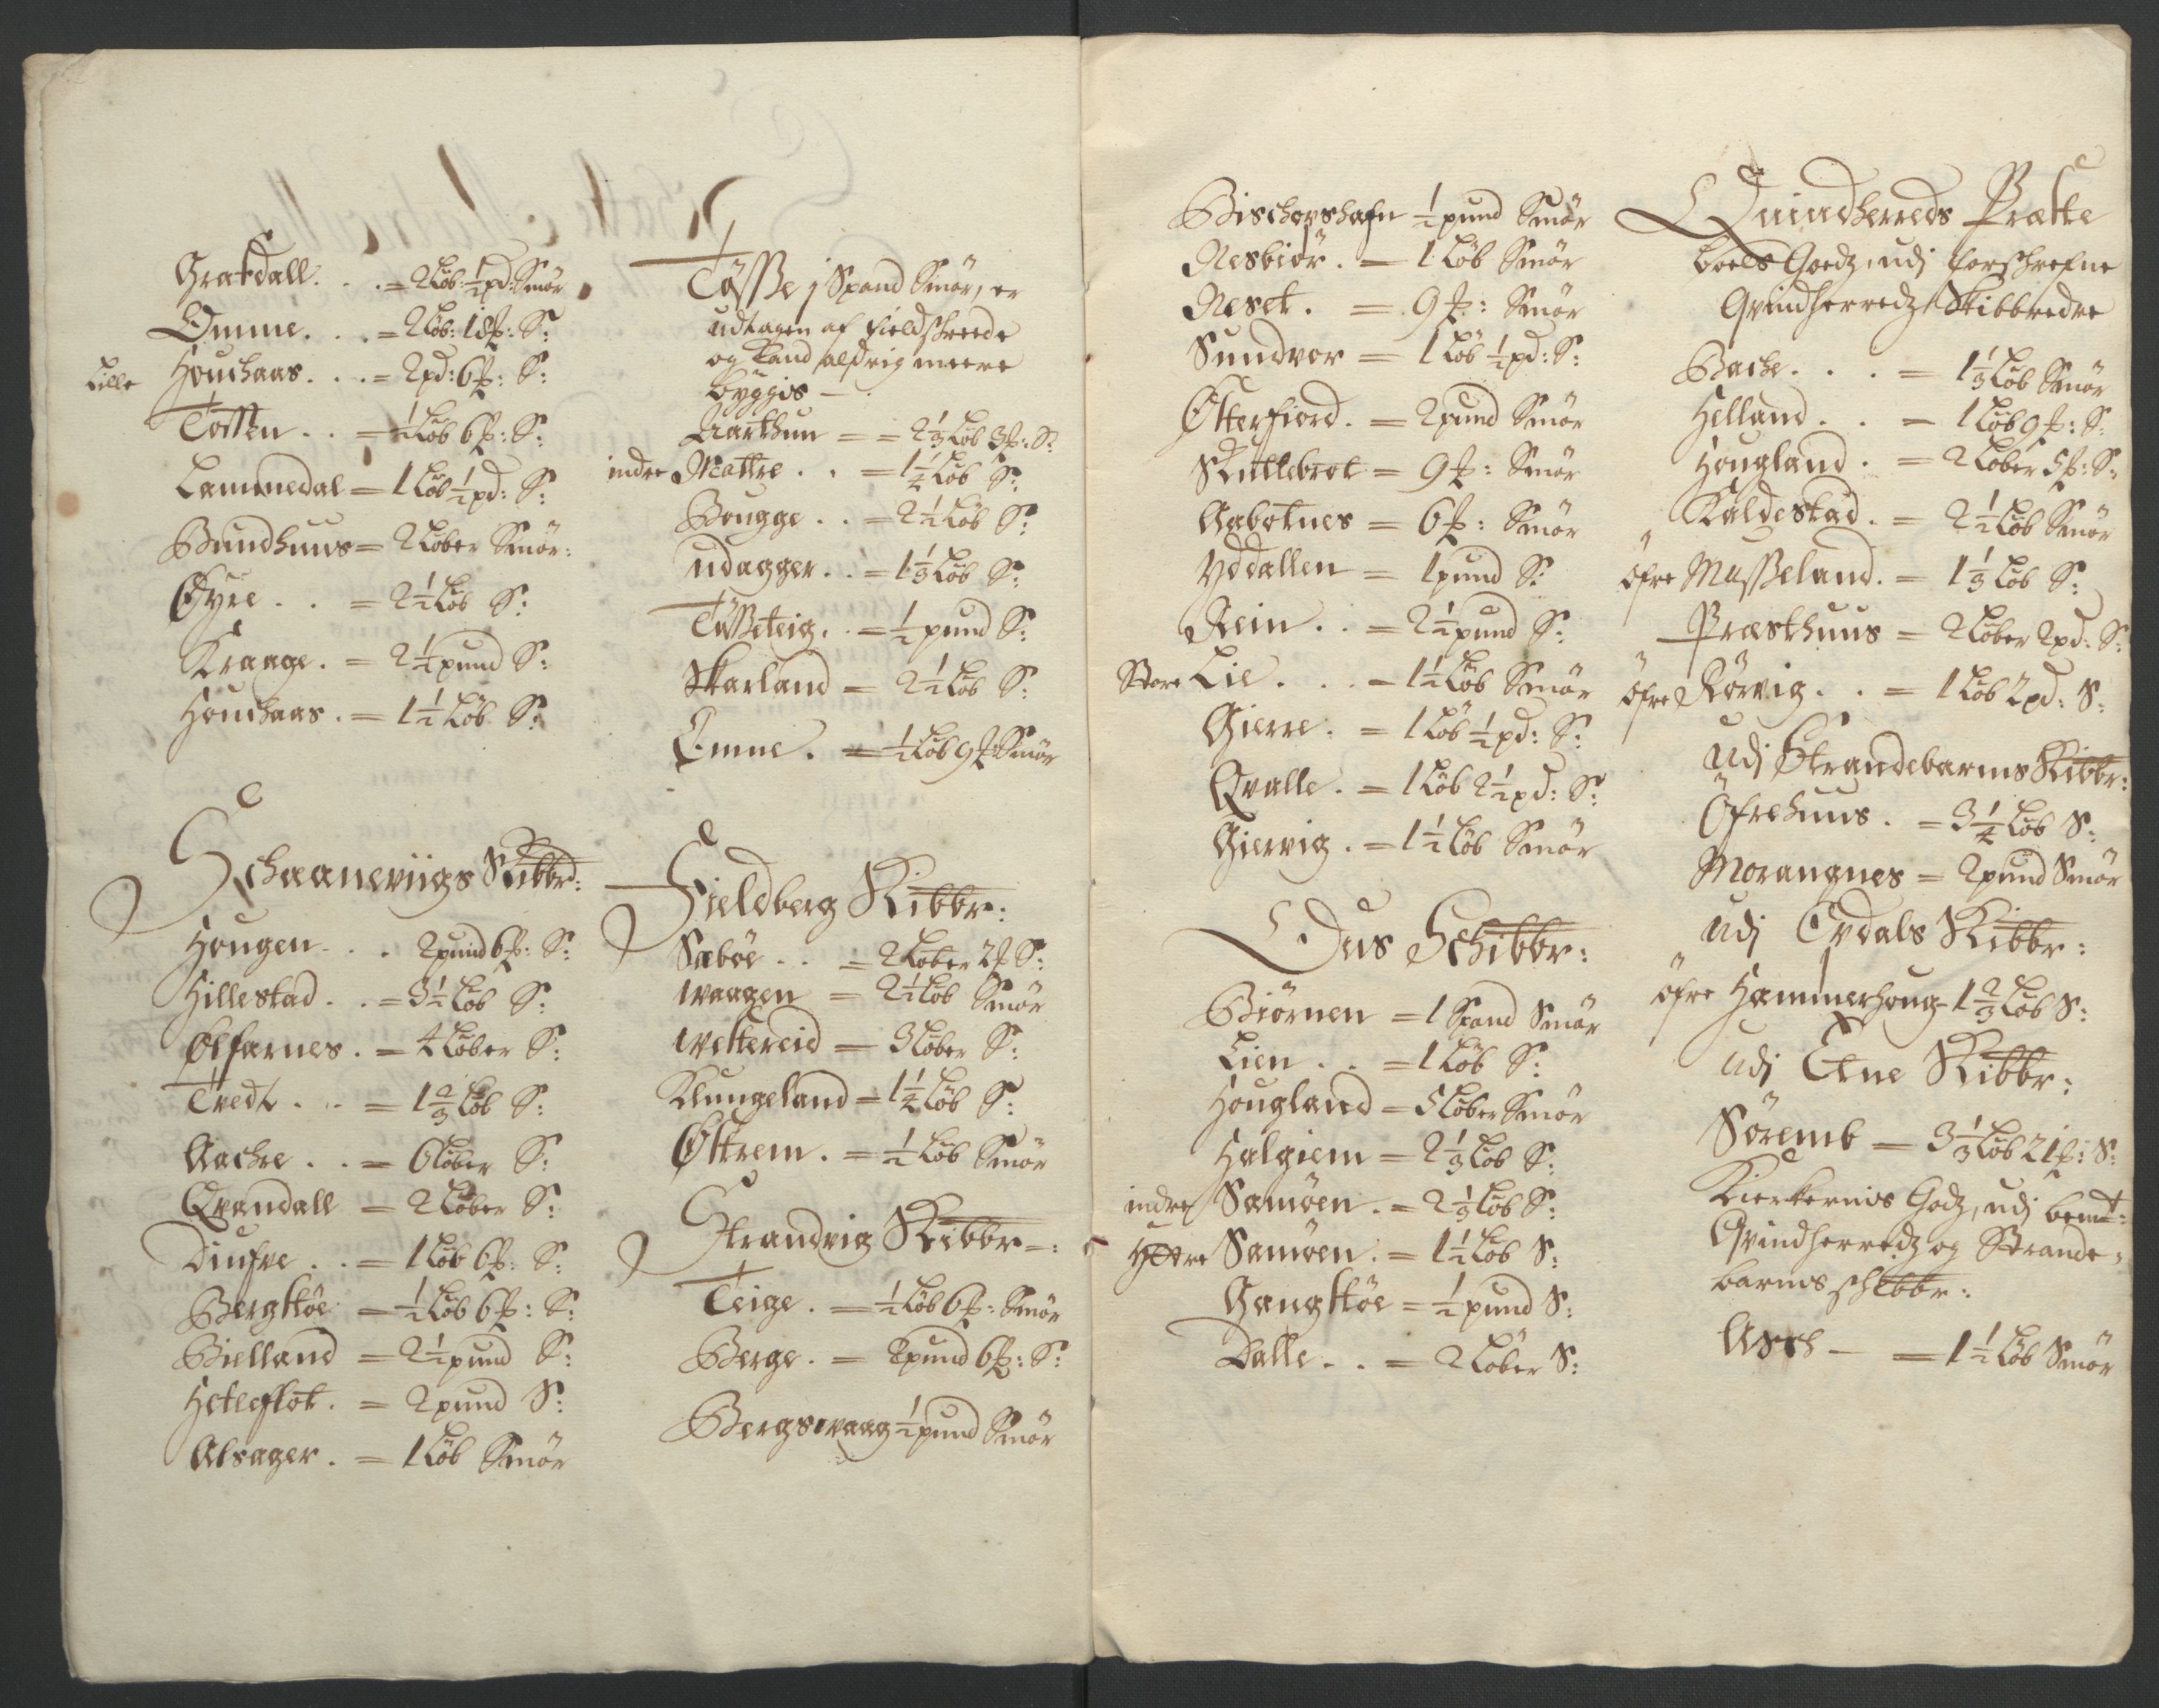 Gratdall. . . = 2 Løb: ½ pd: Smør
Omme. . . . = 2 Løb: 18 ℔: S:
Lille Houchaas. . . = 2 pd: 6 ℔: S:
Totten . . = ½ Løb 6 ℔: S:
Lammedal = 1 Løb ½ pd: S:
Bundhuus = 2 Løber Smør:
Øyre . . = 2½ Løb S:
Kraage. = 2½ pund S:
Houchaas. = 1½ Løb S:
Schaaneviigs Skibbrd:
Hougen. . . 2 pund 6 ℔: S:
Hillestad. . = 3½ Løb S:
Ølfarnes. = 4 Løber S:
Tvedt . . = 1⅔ Løb S:
Aachre . . = 6 Løber S:
Qvandall = 2 Løber S:
Diufve . . = 1 Løb 6 ℔: S:
Bergtøe = ½ Løb 6 ℔: S:
Bielland = 2½ pund S:
Hetleflot. = 2 pund S:
Alsager. = 1 Løb Smør
Tøsse j Spand Smør, er
udtagen af fieldschreede
og kand aldrig meere
byggis -
Aarthun = = 2⅓ Løb 3 ℔: S:
indre Mattre . . = 1¼ Løb S:
Bougge . . = 2½ Løb S:
udagger. . = 1⅓ Løb S:
Tøsseteig. . = ½ pund S:
Skarland = 2½ Løb S:
Omme. = ½ Løb 9 ℔ Smør
Fieldberg Skibbr:
Sæbøe . . = 2 Løber 2 ℔ S:
waagen = 2½ Løb Smør
wettereid = 3 Løber S:
Klungeland = 1¼ Løb S:
Øttrem. = ½ Løb Smør
Strandvig Skibbr:
Teige. = ½ Løb 6 ℔: Smør
Berge. = 2 pund 6 ℔: S:
Bergswaag ½ pund Smør
Bischopshafn ½ pund Smør
Nesbiør. = 1 Løb Smør
Neset. = 9 ℔: Smør
Sundvor = 1 Løb ½ pd: S:
Øtterfiord. = 2 pund Smør
Skuttebrot = 9 ℔: Smør
Gabotnes = 6 ℔: Smør
Yddallen = 1 pund S:
Rein. . = 2½ pund S:
Store Lie. . . = 1½ Løb Smør
Gierre. = 1 Løb ½ pd: S:
Qvalle. = 1 Løb 2½ pd: S:
Giervig. = 1½ Løb Smør
Ous Schibbr:
Biørnen = 1 Spand Smør
Lien . . = 1 Løb S:
Hougland = 5 Løber Smør
Halgiem = 2⅓ Løb S:
indre Samøen. = 2⅓ Løb S:
Yttre Samøen. = 1½ Løb S:
Gangstøe = ½ pund S:
Dalle. . = 2 Løber S:
Quindherreds Prætte
boels Goedz, udj forschrefne
Qvindherredz Skibbredre
Bache. . . = 1⅓ Løb Smør
Helland. . = 1 Løb 9 ℔: S:
Hougland. = 2 Løber 5 ℔: S:
Kaldestad. = 2½ Løb Smør
Øfre Musseland. = 1⅓ Løb S:
Præsthuus = 2 Løber 2 pd: S:
Øfre Rørvig. . = 1 Løb 2 pd: S:
udj Strandebarms Skibbr:
Øfrehuus. = 3¼ Løb S:
Morangnes = 2 pund Smør
udj Opdals Skibbr:
Øfre Hammerhoug - 1⅔ Løb S:
udj Etne Skibbr:
Søremb = 3⅓ Løb 21 ℔: S:
Kierkernis Godz, udj bemt:
Qvindherredz og Strande-
barms schibbr:
Asch - = 1½ Løb Smør